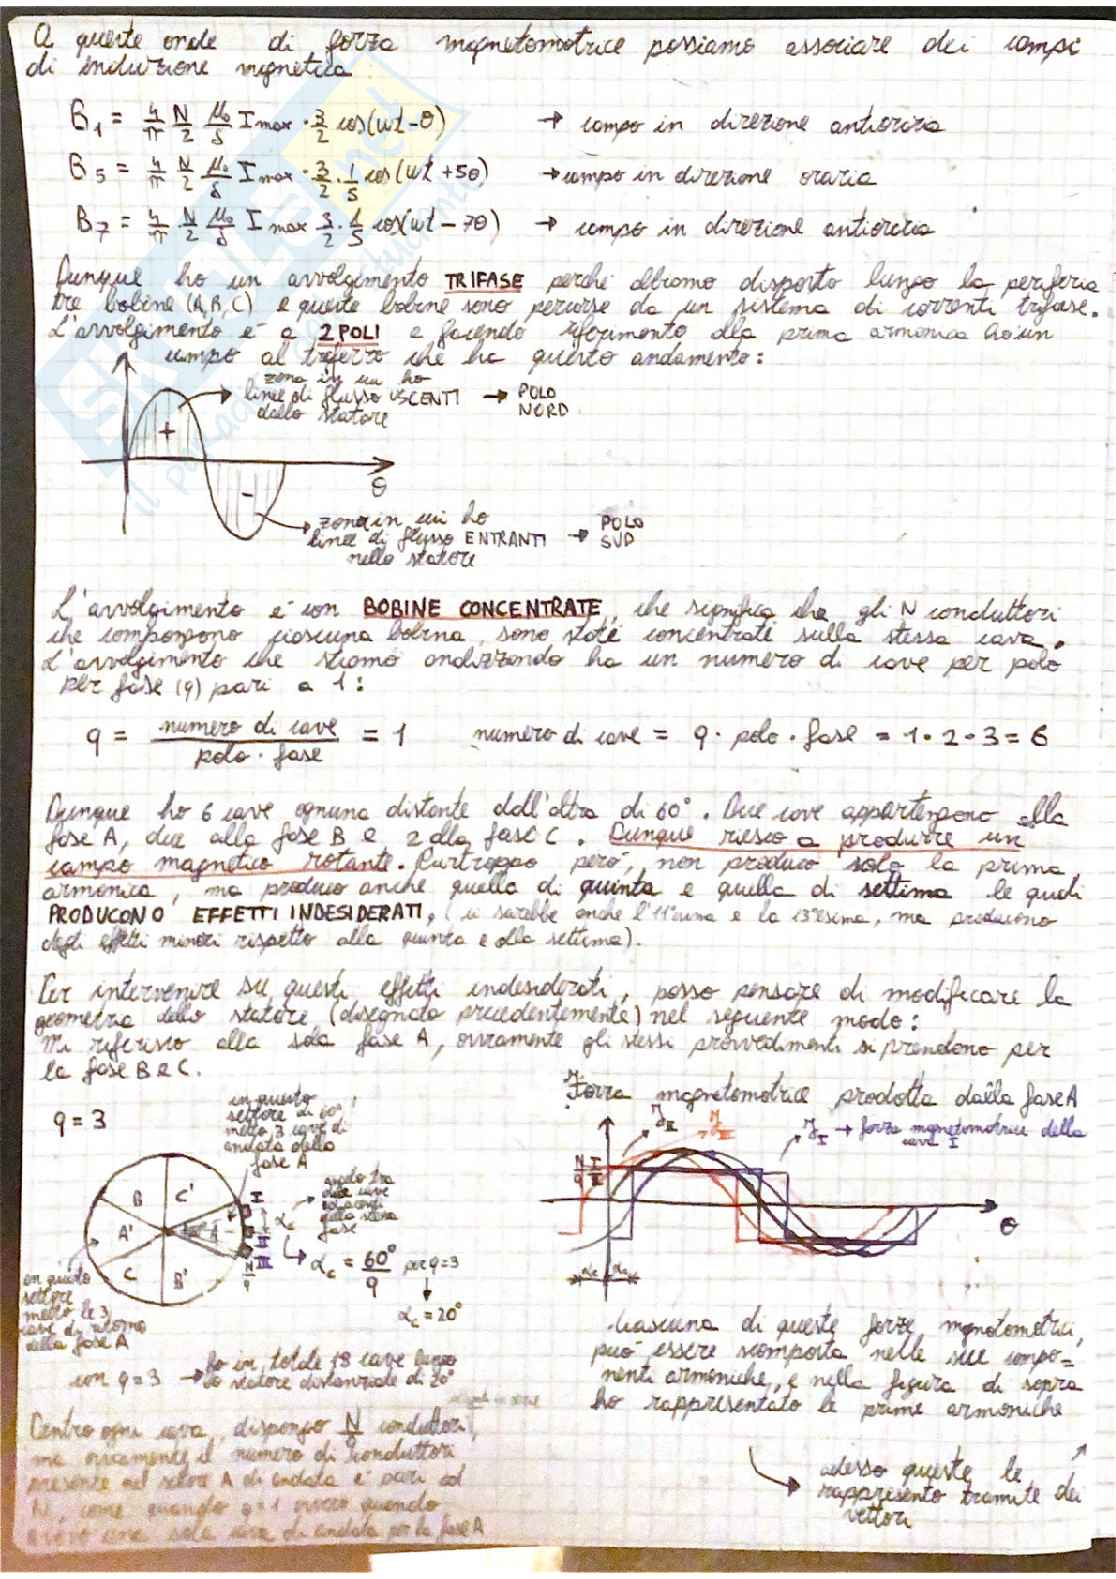 A queste onde di forza magnetomotrice possiamo associare dei campi
di induzione magnetica
B1 = 4/π N/2 μ0/δ Imax · 3/2 cos(ωt-θ) → campo in direzione antioraria
B5 = 4/π N/2 μ0/δ Imax · 3/2 · 1/5 cos(ωt+5θ) → campo in direzione oraria
B7 = 4/π · N/2 μ0/δ Imax 3/2 · 1/5 cos(ωt-7θ) → campo in direzione antioraria
Dunque ho un avvolgimento TRIFASE perché abbiamo disposto lungo la periferia
tre bobine (A,B,C) e queste bobine sono percorse da un sistema di correnti trifase.
L'avvolgimento è a 2 POLI e facendo riferimento alla prima armonica ho un
campo al traferro che ha questo andamento:
zona in cui ho
linee di flusso USCENTI → POLO
dallo statore NORD
+
θ
-
zona in cui ho
linee di flusso ENTRANTI → POLO
nello statore SUD
L'avvolgimento è con BOBINE CONCENTRATE, che significa che gli N conduttori
che compongono ciascuna bobina, sono state concentrate sulla stessa cava.
L'avvolgimento che stiamo analizzando ha un numero di cave per polo
per fase (q) pari a 1:
q = numero di cave / polo · fase = 1 numero di cave = q · polo · fase = 1·2·3 = 6
Dunque ho 6 cave ognuna distante dall'altra di 60°. Due cave appartengono alla
fase A, due alla fase B e 2 alla fase C. Dunque riesco a produrre un
campo magnetico rotante. Purtroppo però, non produco solo la prima
armonica, ma produco anche quella di quinta e quella di settima le quali
PRODUCONO EFFETTI INDESIDERATI, (ci sarebbe anche l'11esima e la 13esima, ma producono
degli effetti minori rispetto alla quinta e alla settima).
Per intervenire su questi effetti indesiderati, posso pensare di modificare la
geometria dello statore (disegnata precedentemente) nel seguente modo:
Mi riferisco alla sola fase A, ovviamente gli stessi provvedimenti si prendono per
la fase B e C.
q = 3
in questo
settore di 60°
metto 3 cave di
andata della
fase A
B C'
A'
C B'
I
II
III
N/q
αc
angolo tra
due cave
adiacenti
della stessa
fase
αc = 60°/q per q=3
αc = 20°
in questo
settore
metto le 3
cave di ritorno
della fase A
con q=3 → ho in totale 18 cave lungo
lo statore distanziate di 20°
Dentro ogni cava, dispongo N/q conduttori,
ma ovviamente il numero di conduttori
presente nel settore A di andata è pari ad
N, come quando q=1 ovvero quando
avevo una sola cava di andata per la fase A
Forza magnetomotrice prodotta dalla fase A
FII
FIII
FI → forza magnetomotrice della
cava I
θ
αc αc
Ciascuna di queste forze magnetomotrici,
può essere scomposta nelle sue compo=
nenti armoniche, e nella figura di sopra
ho rappresentato le prime armoniche
adesso queste le
rappresento tramite dei
vettori